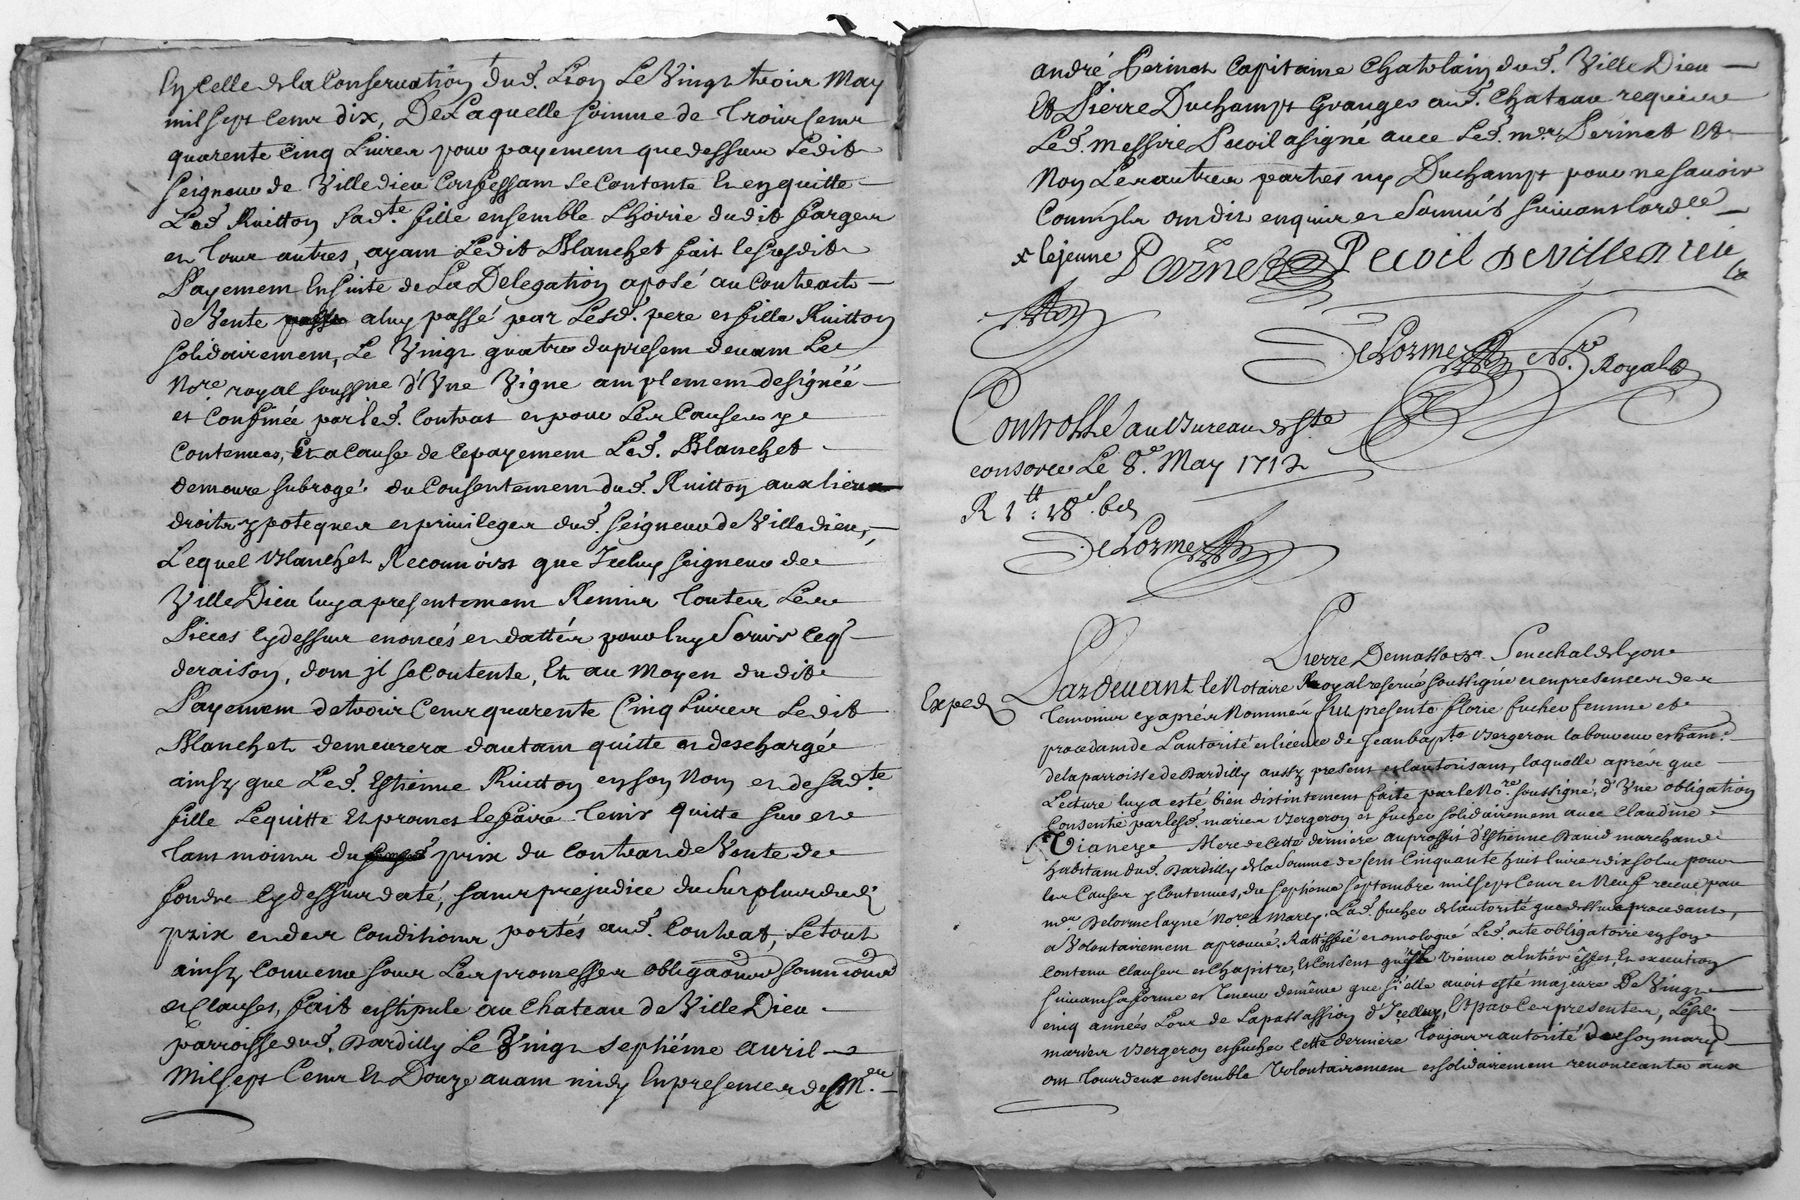 En celle de la Conservation dud. Lion Le Vingt trois May
mil sept cent dix, De Laquelle somme de Trois cent
quarente cinq Livres pour payement que dessus Ledit
seigneur de Villedieu Confessant se Contente et en quitte
Led. Ruitton sadte fille ensemble L'hoirie dudit farges
et tous autres, ayant Ledit Blanchet fait le susdit
Payement En suite de La Delegation aposé au contract
de Vente a luy passé par Lesd. pere et fille Ruitton
solidairement, Le Vingt quatre du present devant Le
Nore. royal soussne d'Une Vigne amplement designée
et Confinée par led. Contrat et pour Les Causes y
contenues, Et a cause de ce payement Led. Blanchet
demeure subrogé du Consentement dud. Ruitton aux lieux
droits ypoteques et privileges dud. seigneur de Villedieu,
Lequel Blanchet Reconnoist que Iceluy seigneur de
Ville Dieu luy a presentement Remis Toutes Les
Pieces cy dessus enoncés et dattés pour luy Servir ce q
de raison, dont jl se Contente, Et au Moyen dudit
Payement de trois Cent quarente Cinq Livres Ledit
Blanchet demeurera d'autant quitte et deschargé
ainsy que Led. Estienne Ruitton en son Nom et de sadte
fille Lequitte Et promet le faire Tenir quitte sur et
Tant moins du prix du contrat de Vente de
fondre cy dessus daté, sans prejudice du surplus dud
prix et des conditions portés aud. Contrat, Le tout
ainsy convenu sous Les promesses obligaons soumions
et Clauses, fait et stipulé au Chateau de Ville Dieu
parroisse dud. Dardilly Le Vingt septiéme avril
Mil sept Cent Et Douze avant midy En presence de M.re
andré Perinet Capitaine Chatelain dud. Ville Dieu
Et Pierre Duchampt Granger aud. Chateau requis
Led. messire Pecoil a signé avec Led. mre Perinet Et
Non Les autres parties ny Duchampt pour ne savoir
Comme ils ont dit enquis et Sommés suivant lordce
x lejeune Parnet Pecoil de villedieu
DeLorme No.re Royal
Controllé au Bureau de Ste
consorce Le 8e. May 1712
R 1tt: 18s. 6d
DeLorme
Pierre Demasso &a. Senechal de Lyon
Exped
Pardevant le Notaire Royal reservé soussigné et en presence des
temoins cy aprés Nommés fut presente florie fucher femme et
procedant de L'autorité et licence de Jean bapte Bergeron laboureur et hant.
de la parroisse de Dardilly aussy present et l'autorisant, laquelle aprés que
Lecture luy a esté bien distintement faite par le No.re soussigné, d'Une obligation
Consentie par lesd. mariés Bergeron et fucher solidairement avec Claudine
Vianey Mere de cette derniere au proffit d'Estienne David marchand
habitant dud. Dardilly de la Somme de Cent Cinquante huit livres dix sols pour
les Causes y Contenues, du septiéme septembre mil sept Cent et Neuf receue par
me. Delorme layné Nore. a Marcy. Lad. fucher de l'autorité que dessus procedante,
a Volontairement aprouvé, Rattiffié et omologué Led. acte obligatoire en son
contenu clauses et Chapitre, Et Consent qu'il vienne a Entier effet, Et execution
suivant sa forme et Teneur de même que si elle avoit esté majeure De Vingt
cinq années Lors de La passassion d'Icelluy, Et par Ces presentes, Lesd.
mariés Bergeron et fucher cette derniere Toujours autorisé de son mary
ont tous deux ensemble Volontairement et solidairement renonceants aux